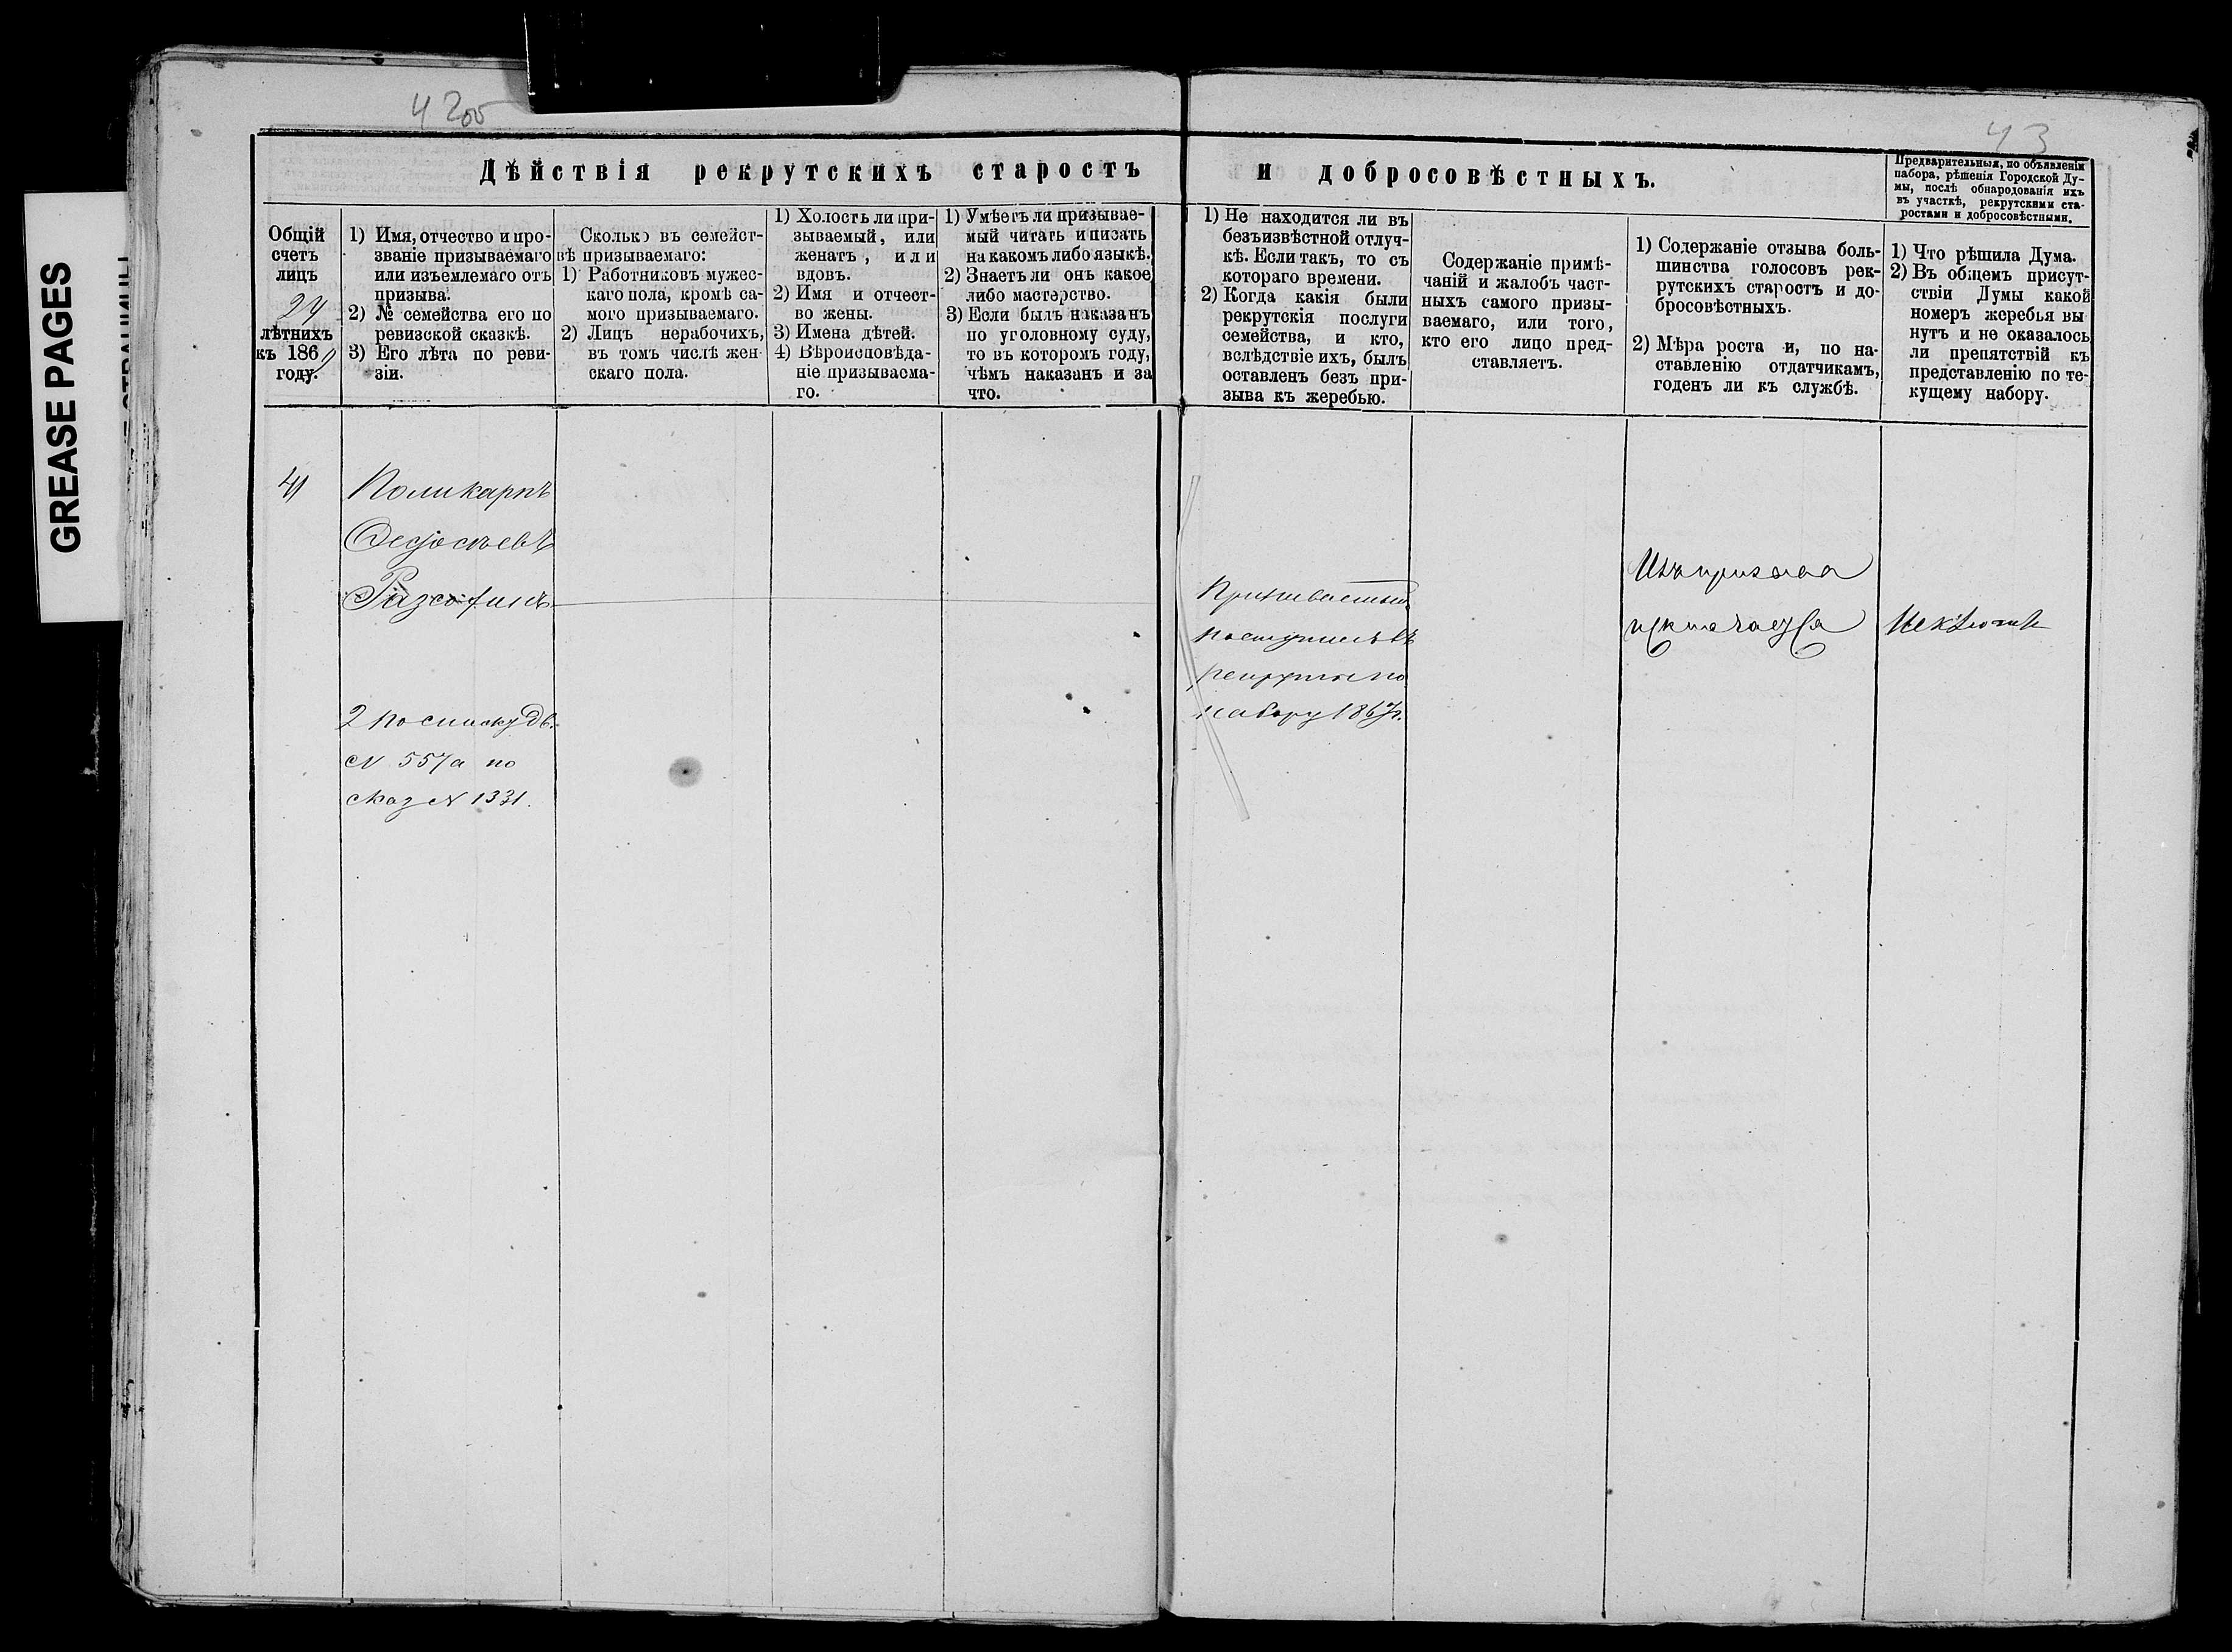 GREASE PAGES
42об
43
Дѣйствія рекрутскихъ старостъ и добросовѣстныхъ.
Предварительныя, по объявленіи
набора, рѣшенія Городской Ду-
мы, послѣ обнародованія ихъ
въ участкѣ, рекрутскими ста-
ростами и добросовѣстными.
Общій
счетъ
лицъ
24
лѣтнихъ
къ 186
году.
1) Имя, отчество и про-
званіе призываемаго
или изъемлемаго отъ
призыва.
2) № семейства его по
ревизской сказкѣ.
3) Его лѣта по реви-
зіи.
Сколько въ семейст-
вѣ призываемаго:
1) Работниковъ мужес-
каго пола, кромѣ са-
мого призываемаго.
2) Лицъ нерабочихъ,
въ томъ числѣ жен-
скаго пола.
1) Холостъ ли при-
зываемый, или
женатъ, или
вдовъ.
2) Имя и отчест-
во жены.
3) Имена дѣтей.
4) Вѣроисповѣда-
ніе призываема-
го.
1) Умѣетъ ли призывае-
мый читать и писать
на какомъ либо языкѣ.
2) Знаетъ ли онъ какое
либо мастерство.
3) Если былъ наказанъ
по уголовному суду,
то въ которомъ году,
чѣмъ наказанъ и за
что.
1) Не находится ли въ
безъизвѣстной отлуч-
кѣ. Если такъ, то съ
котораго времени.
2) Когда какія были
рекрутскія послуги
семейства, и кто,
вслѣдствіе ихъ, былъ
оставленъ безъ при-
зыва къ жеребью.
Содержаніе примѣ-
чаній и жалобъ част-
ныхъ самого призы-
ваемаго, или того,
кто его лицо пред-
ставляетъ.
1) Содержаніе отзыва боль-
шинства голосовъ рек-
рутскихъ старостъ и до-
бросовѣстныхъ.
2) Мѣра роста и, по на-
ставленію отдатчикамъ,
годенъ ли къ службѣ.
1) Что рѣшила Дума.
2) Въ общемъ присут-
ствіи Думы какой
номеръ жеребья вы
нутъ и не оказалось
ли препятствій къ
представленію по те-
кущему набору.
41
Поликарпъ
Федосѣевъ
2 по списку дв.
N 557а по
сказ N 1331.
Призываемый
поступилъ въ
рекруты по
набору 1867г.
Изъ призыва
исключается
Исключить